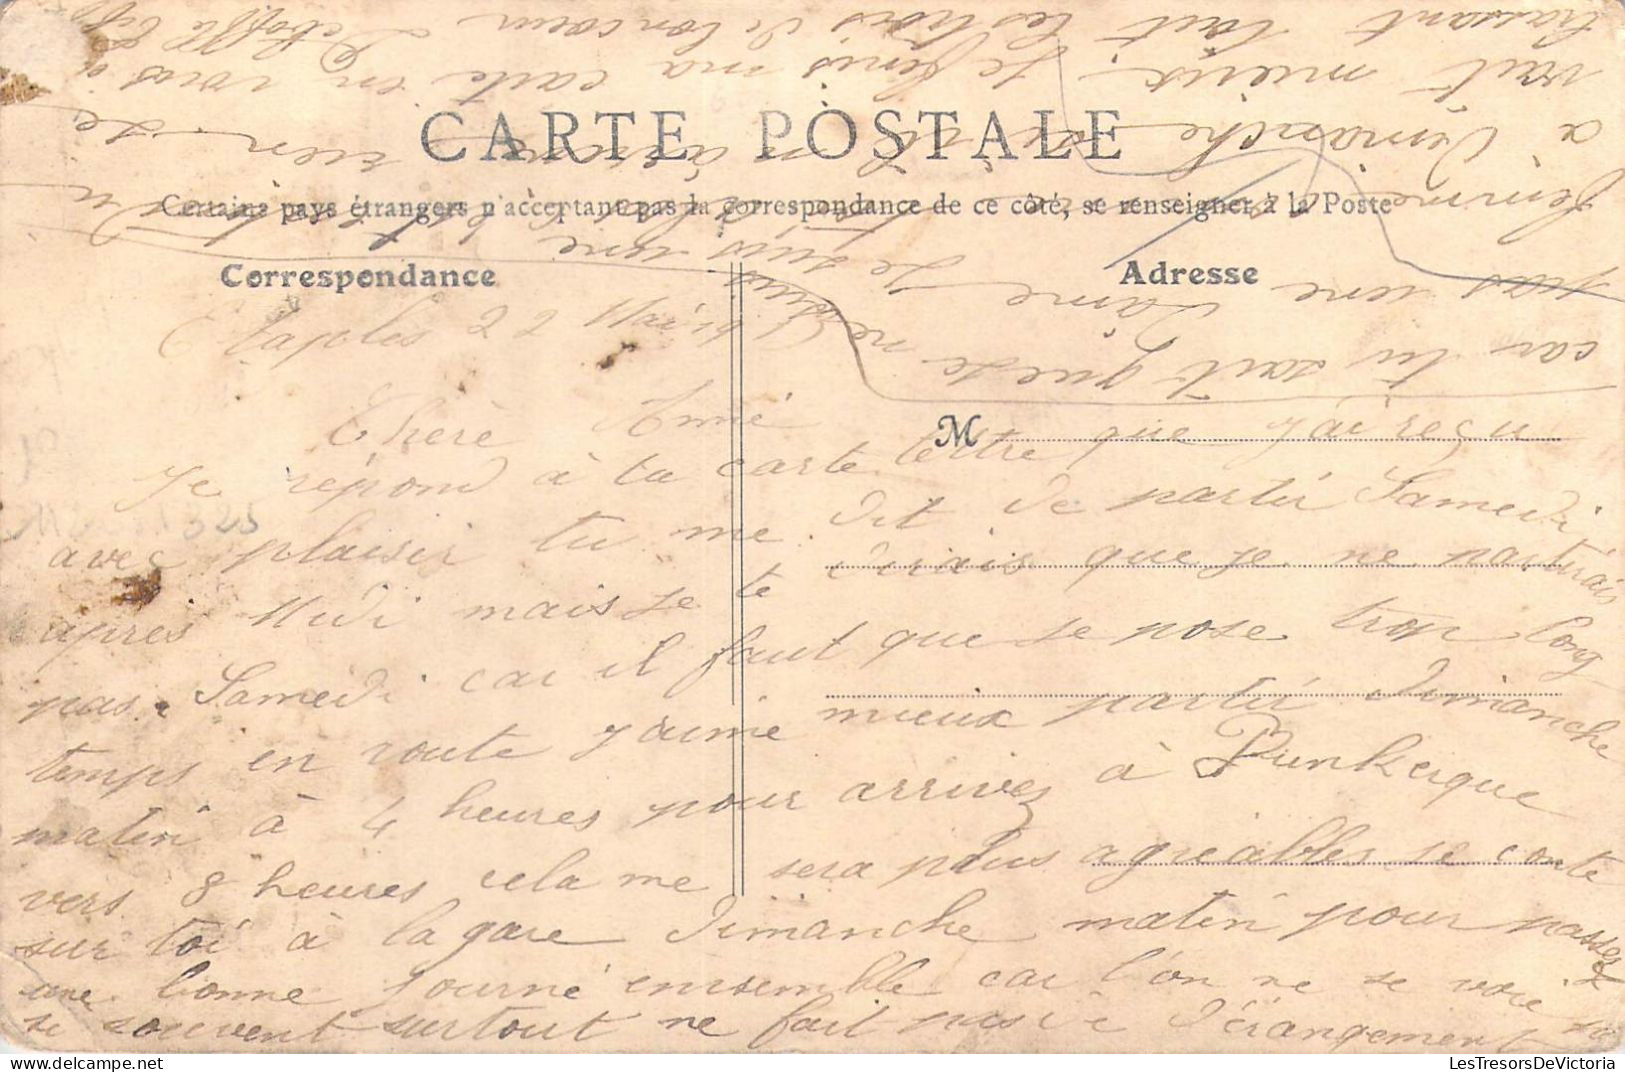 CARTE POSTALE
Certains pays étrangers n'acceptant pas la correspondance de ce côté, se renseigner à la Poste
Correspondance
Adresse
M
Etaples 22 Mai
Chère Amie
Je répond à ta carte lettre que j'ai reçu
avec plaisir tu me dit de partir Samedi
après Midi mais je te dirais que je ne partirais
pas. Samedi car il faut que je pose trop long
temps en route j'aime mieux partir Dimanche
matin à 4 heures pour arrivez à Dunkerque
vers 8 heures cela me sera plus agréables je conte
sur toi à la gare Dimanche matin pour passer
une bonne journé ensemble car l'on ne se voie
se souvent surtout ne fait pas de dérangement
car tu sait que je ne
pas une Dame je suis une
femme
a Dimanche rien je
vait mieux je finis ma carte en vous
trassant tout les trois de bon cœur
LesTresorsDeVictoria